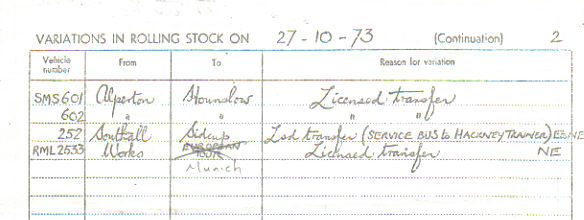 VARIATIONS IN ROLLING STOCK ON 27-10-73 (Continuation) 2
Vehicle number From To Reason for variation
SMS 601 Alperton Hounslow Licensed transfer
602 " " " "
252 Southall Sidcup Lsd transfer (SERVICE BUS to HACKNEY TRAINER) EE:NE
RML 2533 Works EUROPEAN TOUR Licensed transfer NE
Munich